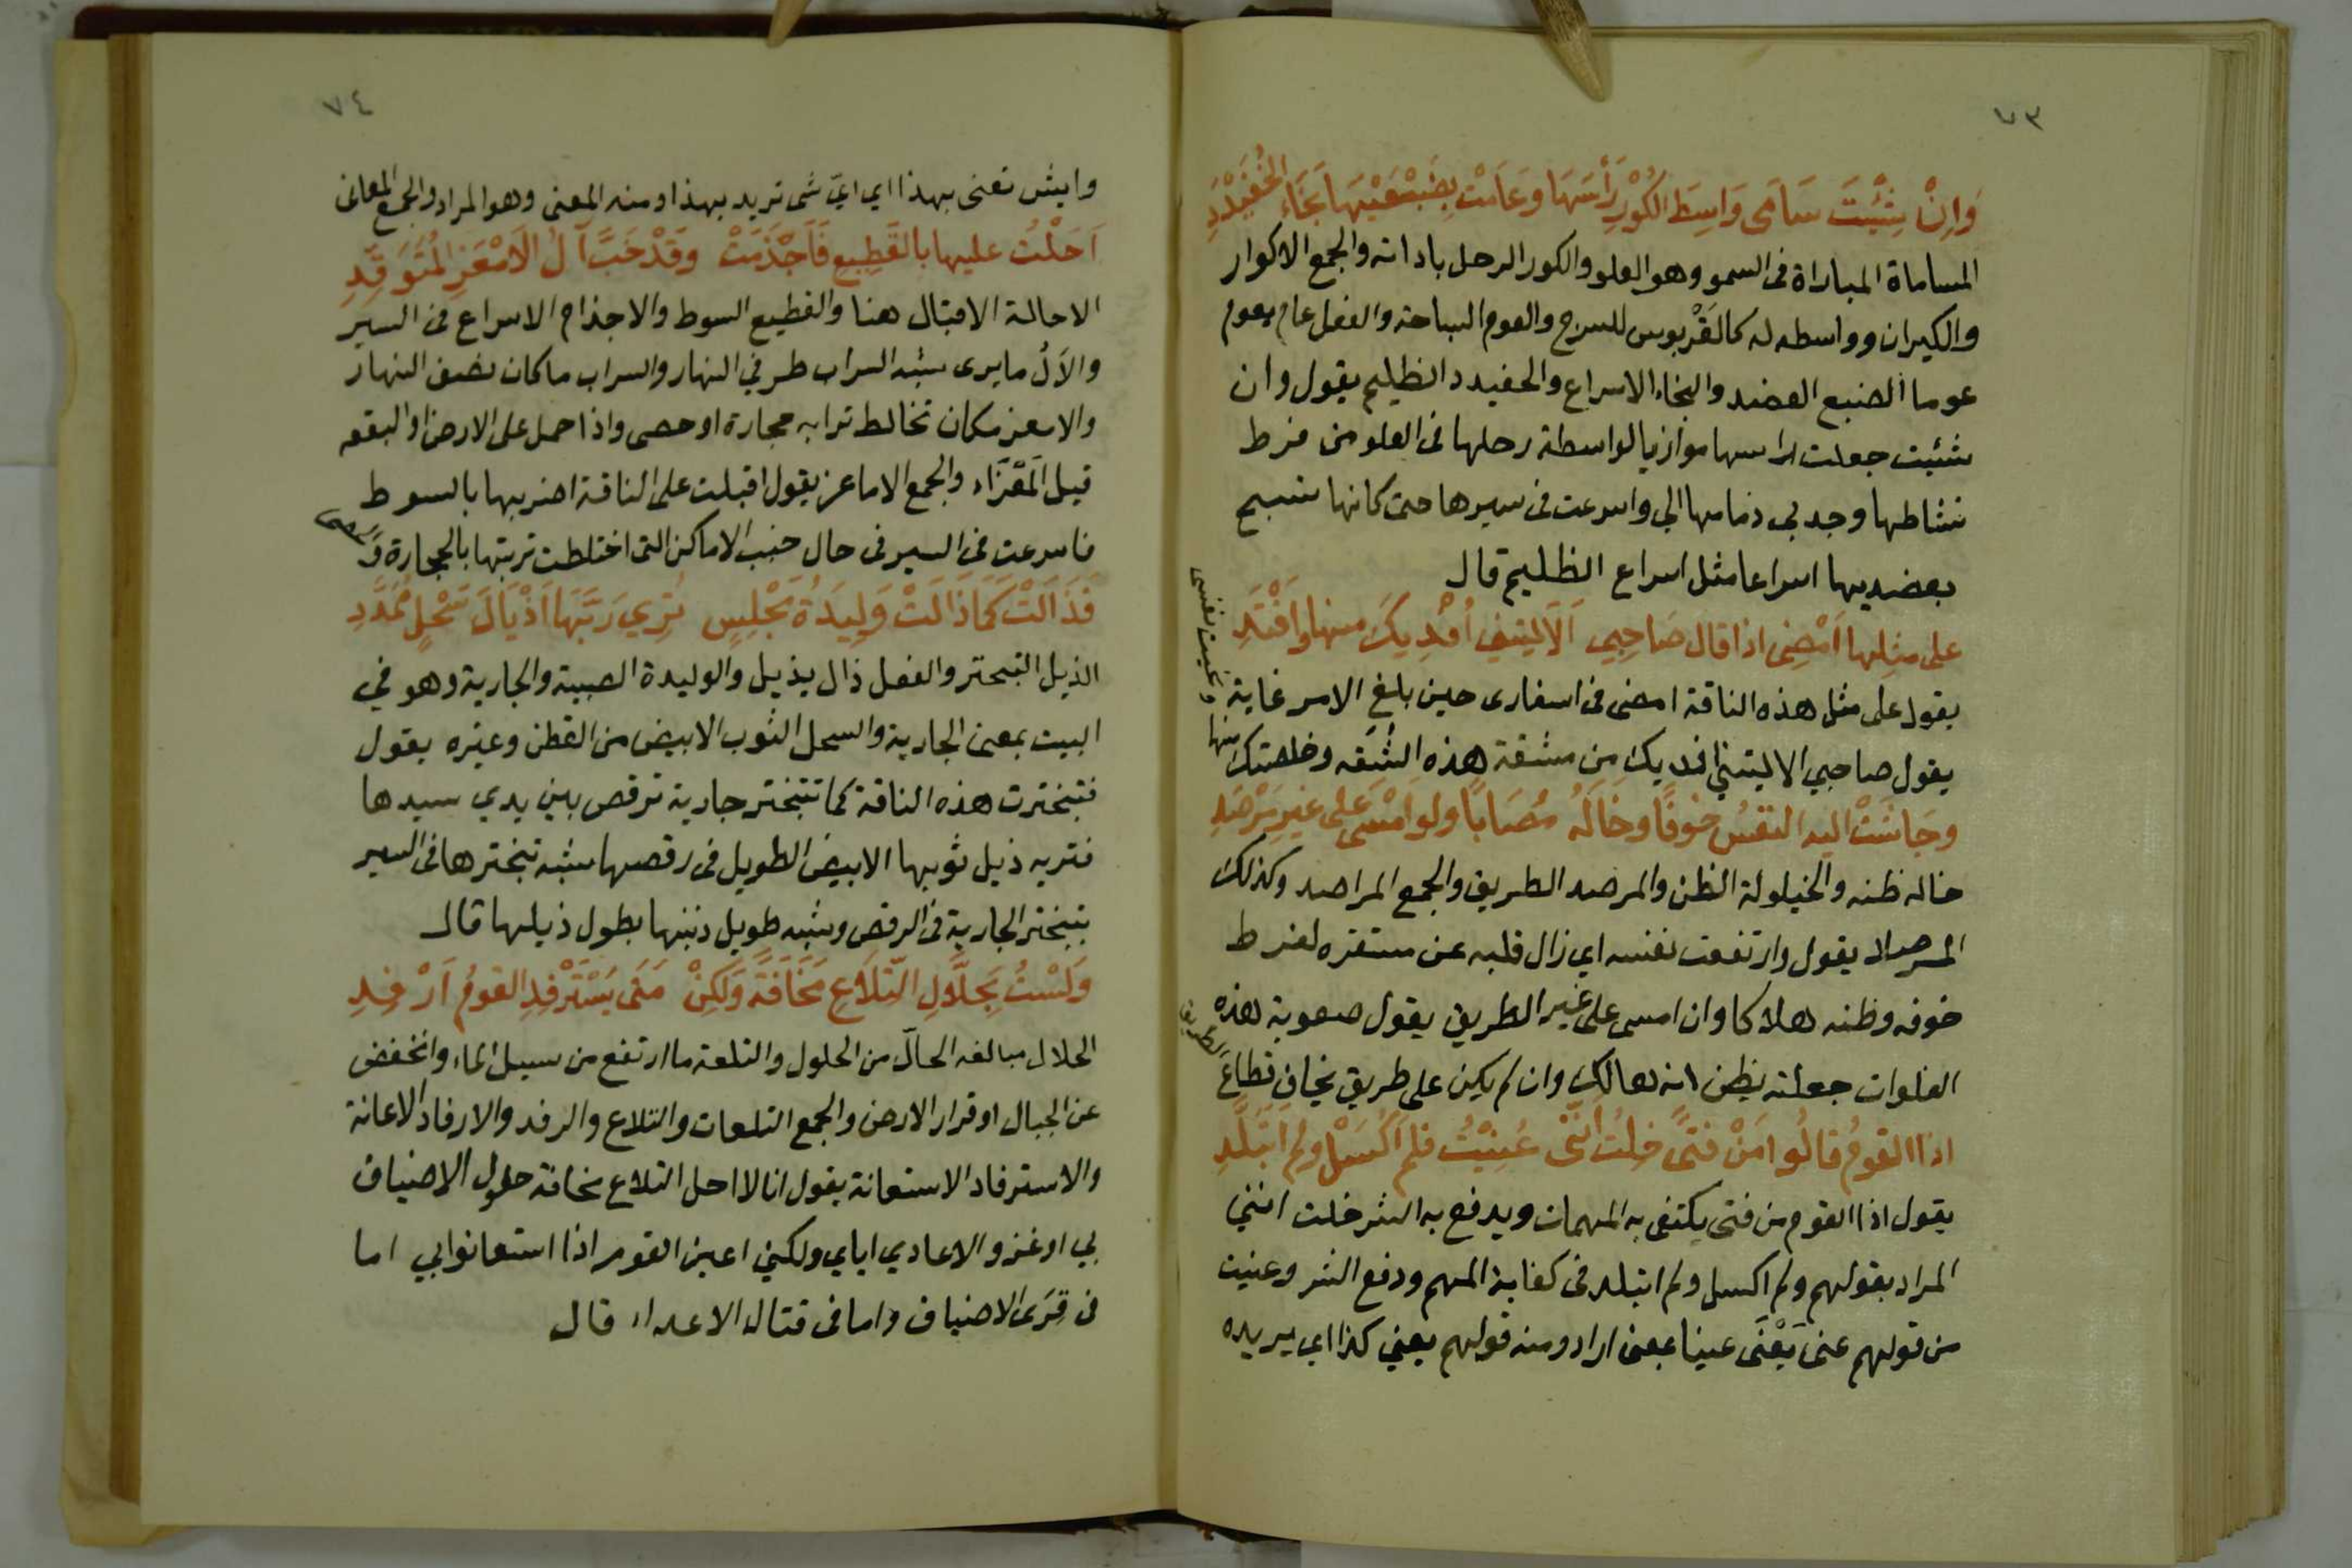 ٧٣
وَاِنْ شِئْتَ سَامَى وَاسِطَ الكُوْرِ رَأْسَهَا وعَامَتْ بِضَبْعَيْهَا نَجَاءَ الخُفَيْدَدِ
المساماة المباراة فى السمو وهو العلو والكور الرحل باداته والجمع الاكوار
والكيران وواسطه له كالقَرْبوس للسرج والعوم السباحة والفعل عام يعوم
عوما الضبع العضد والنجاء الاسراع والحفيدد الظليم يقول وان
شئيت جعلت راسها موازيا لواسطة رحلها فى العلو من فرط
نشاطها وجد بي زمامها الي واسرعت فى سيرها حتى كانها تسبح
بعضديها اسراعا مثل اسراع الظليم قال
على مثلِها اَمْضِى اذا قال صَاحِبِي اَلاَ ليتني اُفْدِيكَ منها وَاَفْتَدِ
يقول على مثل هذه الناقة امضى فى اسفارى حين بلغ الامر غاية
يقول صاحبي الا ليتني افديك من مشقة هذه الشقه وخلصتك منها
ونجيت نفسى
وجَاشَتْ اليه النفسُ خوفًا وخَالَهُ مُصَابًا ولو اَمْسَى على غيرِ مَرْصَدِ
خاله ظنه والخيلولة الظن والمرصد الطريق والجمع المراصد وكذلك
المرصاد يقول وارتفعت نفسه اي زال قلبه عن مستقره لفرط
خوفه وظنه هلاكا وان امسى على غير الطريق يقول صعوبة هذه
الفلوات جعلته يظن انه هالك وان لم يكن على طريق يخاف قطاع الطريق
اذا القومُ قالُوا مَنْ فتًى خِلتُ اَنَّنى عُنِيْتُ فلم اَكْسَلْ ولم اَتَبَلَّدِ
يقول اذا القوم من فتى يكتفى به المهمات ويدفع به الشر خلت انني
المراد بقولهم ولم اكسل ولم اتبلد فى كفاية المهم ودفع الشر وعنيت
من قولهم عنى يَعْنَى عينا بمعنى اراد ومنه قولهم يعني كذا اي يريده
٧٤
وايش تعنى بهذا اي ايّ شى تريد بهذا ومنه المعنى وهو المراد والجمع المعانى
اَحَلْتُ عليها بالقَطِيعِ فَاَجْذَمَتْ وَقَدْ خَبَّ آلُ الاَمْعَزِ المُتَوَقِّدِ
الاحالة الاقبال هنا والقطيع السوط والاجذام الاسراع فى السير
والاَلُ مايرى شبه السراب طرفي النهار والسراب ماكان نصف النهار
والامعز مكان تخالط ترابه حجارة اوحصى واذا حمل على الارض او البقعه
قيل المَعْزَاء والجمع الاماعز يقول اقبلت على الناقة اضربها بالسوط
فاسرعت فى السير فى حال خبب الاماكن التى اختلطت تربتها بالحجارة
فَذَالَتْ كَمَا ذَالَتْ وَلِيدَةُ مَجْلِسٍ تُرِي رَبَّهَا اَذْيَالَ سَحْلٍ مُمَدَّدِ
الذيل التبحتر والفعل ذال يذيل والوليدة الصبية والجارية وهو في
البيت بمعنى الجارية والسحل الثوب الابيض من القطن وغيره يقول
فتبخترت هذه الناقة كما تتبختر جارية ترقص بين يدي سيدها
فتريه ذيل ثوبها الابيض الطويل فى رقصها شبه تبخترها فى السير
بتبختر الجارية فى الرقص وشبه طويل ذنبها بطول ذيلها قال
وَلَسْتُ بحَلَّالِ التِّلاَعِ مَخَافَةً وَلَكِنْ مَتَى يَسْتَرْفِدِ القومُ اَرْفِدِ
الحلال مبالغه الحالّ من الحلول والتلعة ما ارتفع من سيل الماء وانخفض
عن الجبال او قرار الارض والجمع التلعات والتلاع والرفد والارفاد الاعانة
والاسترفاد الاستعانة يقول انا لا احل التلاع مخافة حلول الاضياف
بي اوغزو الاعادي اياي ولكني اعين القوم اذا استعانوا بي اما
فى قِرَى الاضياف واما فى قتال الاعداء قال